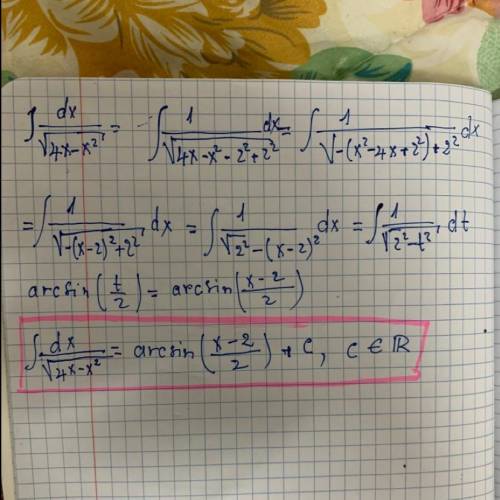 ∫ dx/√(4x-x²) = ∫ 1/√(4x-x²-2²+2²) dx = ∫ 1/√(-(x²-4x+2²)+2²) dx
= ∫ 1/√(-(x-2)²+2²) dx = ∫ 1/√(2²-(x-2)²) dx = ∫ 1/√(2²-t²) dt
arcsin(t/2) = arcsin((x-2)/2)
∫ dx/√(4x-x²) = arcsin((x-2)/2) + C, C ∈ ℝ